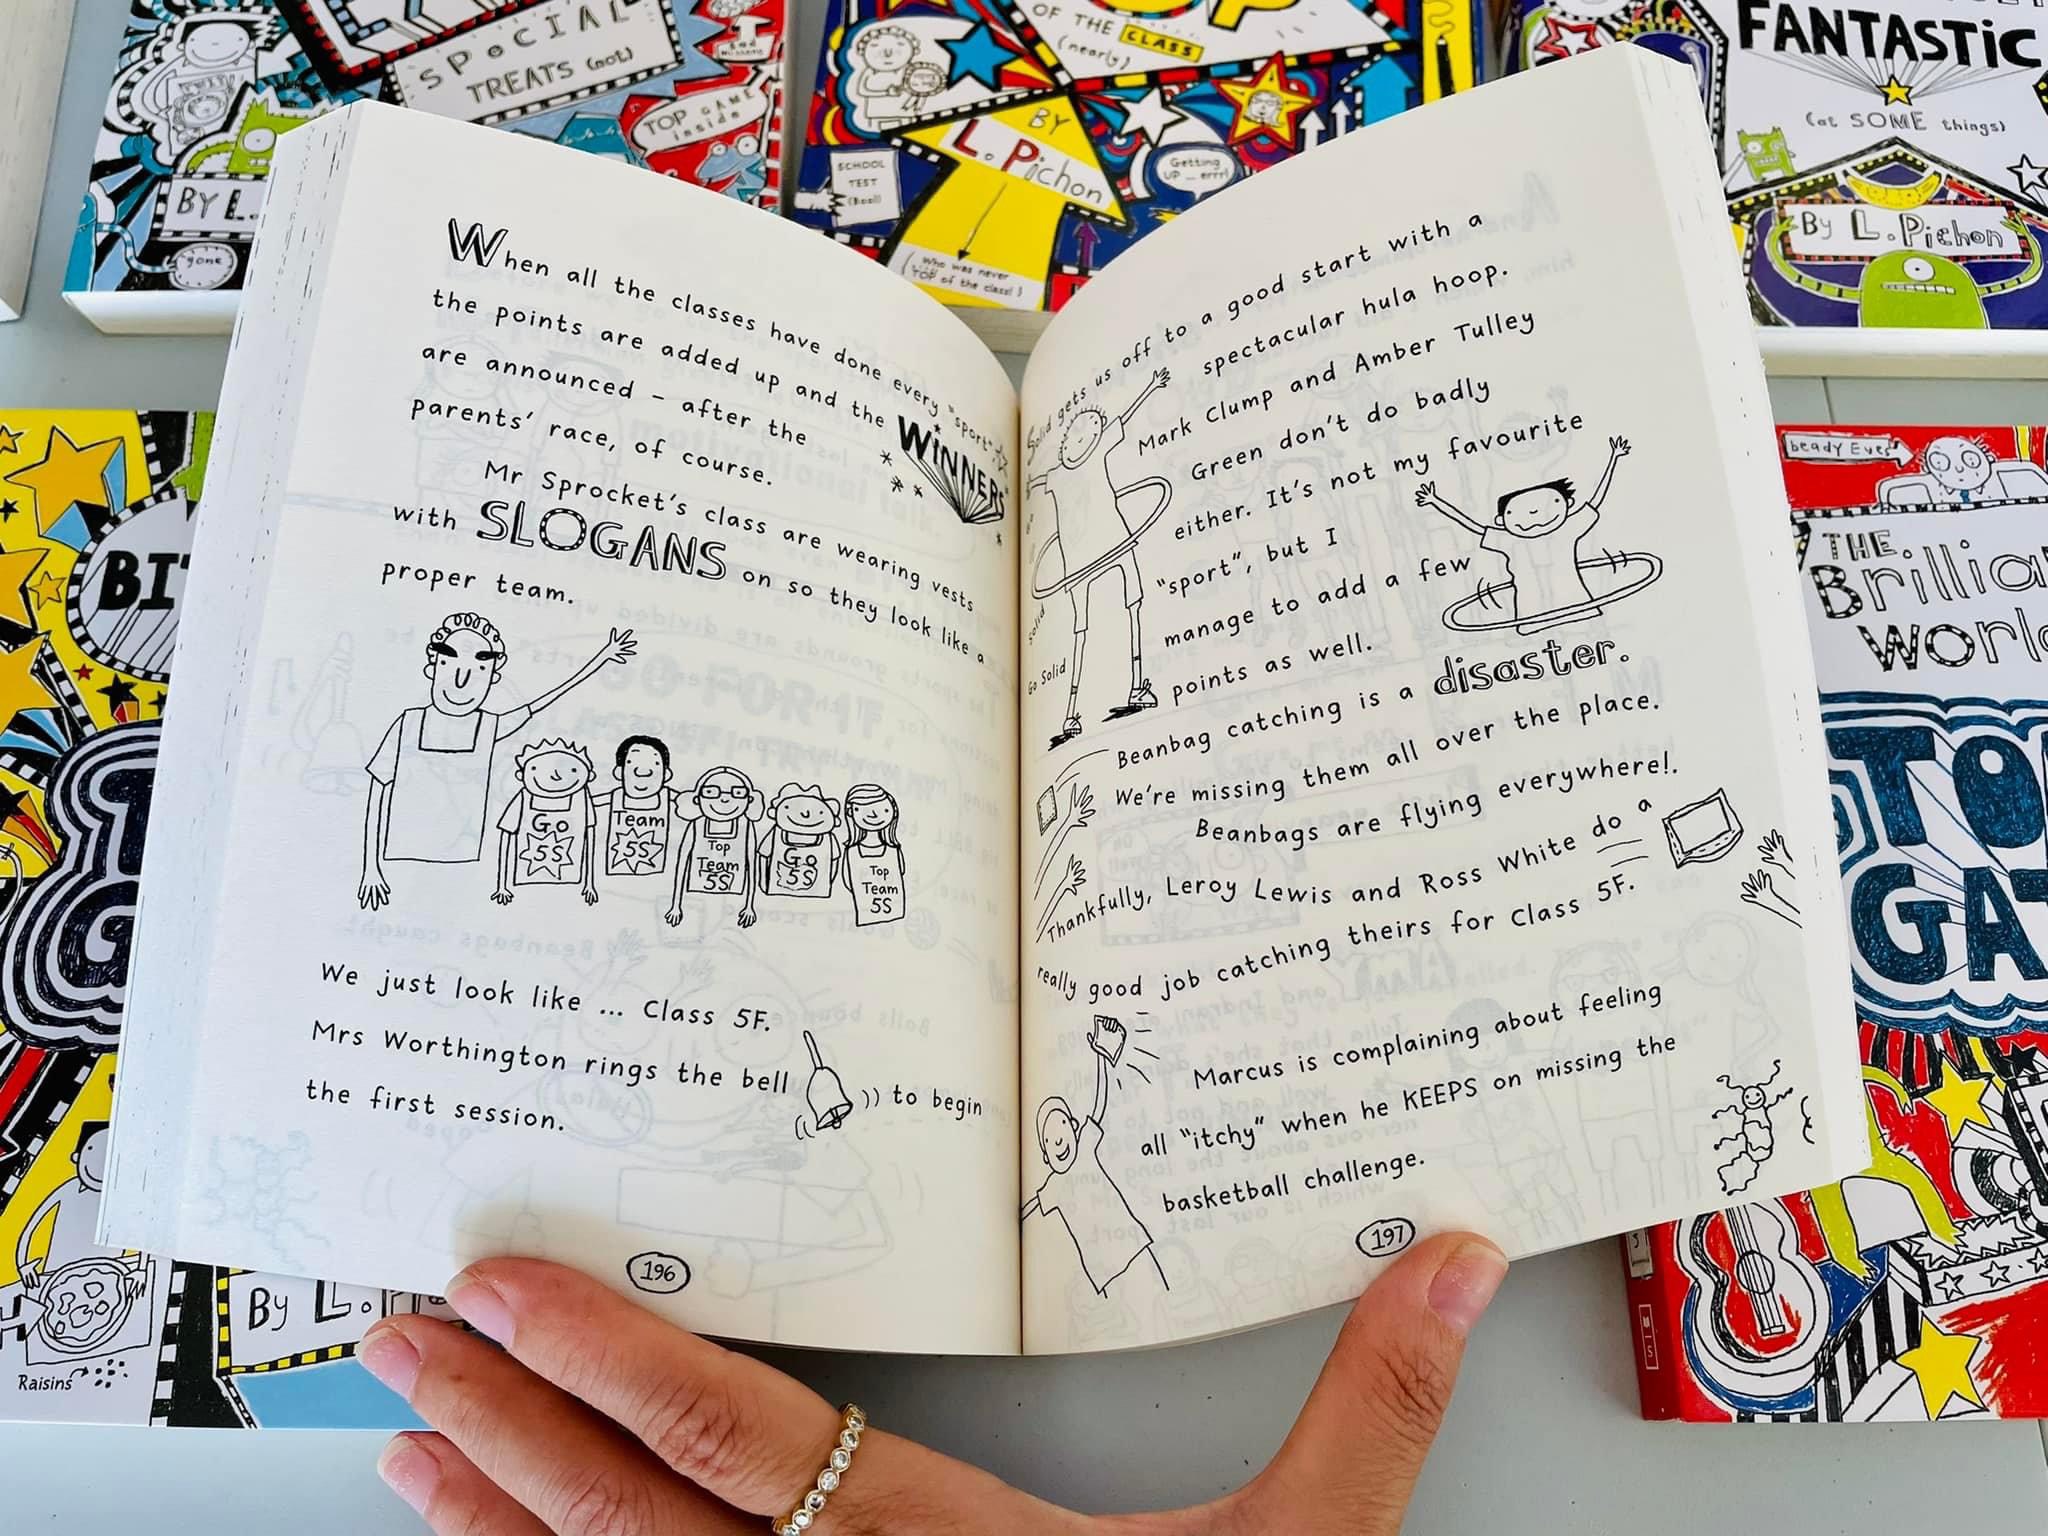 SPECIAL
TREATS (not)
TOP GAME
inside
BY L.
gone
OF THE CLASS
(nearly)
BY
L. Pichon
SCHOOL
TEST
(Boo!)
Getting
UP ... errr!
(Who was never
TOP of the class!)
FANTASTIC
(at SOME things)
By L. Pichon
When all the classes have done every "sport"
the points are added up and the WINNERS
are announced – after the
parents' race, of course.
Mr Sprocket's class are wearing vests
with SLOGANS on so they look like a
proper team.
Go
5S
Team
5S
Top
Team
5S
Go
5S
Top
Team
5S
We just look like ... Class 5F.
Mrs Worthington rings the bell to begin
the first session.
196
Solid gets us off to a good start with a
spectacular hula hoop.
Mark Clump and Amber Tulley
Green don't do badly
either. It's not my favourite
"sport", but I
manage to add a few
points as well.
Solid
Go Solid
Beanbag catching is a disaster.
We're missing them all over the place.
Beanbags are flying everywhere!.
Thankfully, Leroy Lewis and Ross White do a
really good job catching theirs for Class 5F.
Marcus is complaining about feeling
all "itchy" when he KEEPS on missing the
basketball challenge.
197
beady Eyes
THE
Brillia
World
TO
GAT
BI
By L.
Raisins